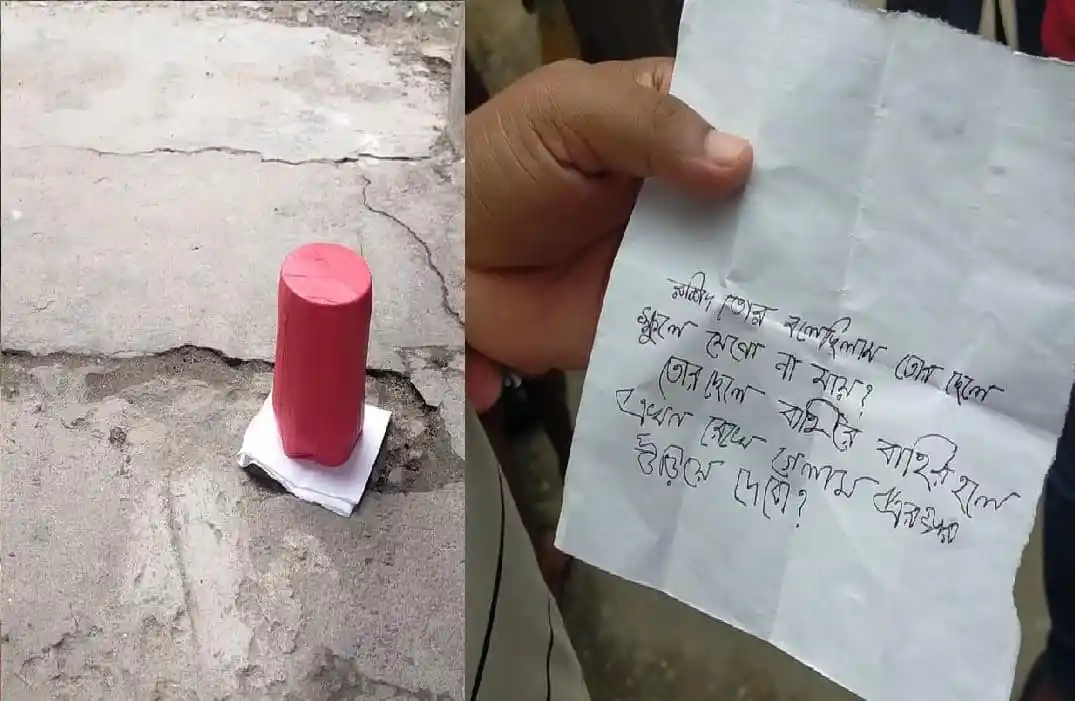 রশিদ তোর বলেছিলাম তোর ছেলে
স্কুলে যেনো না যায়?
তোর ছেলে বাহিরে বাহির হলে
এখন রেখে গেলাম এরপর
উড়িয়ে দেবো?